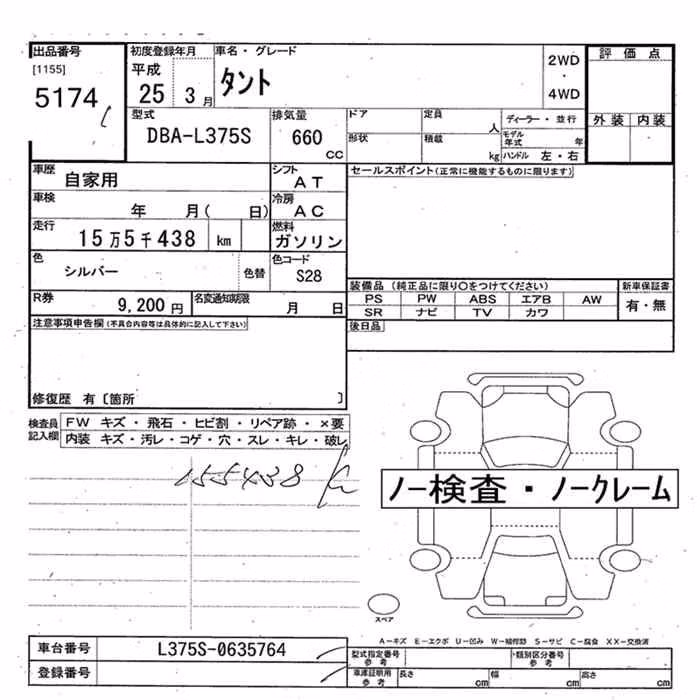 出品番号 初度登録年月 車名・グレード 2WD 評価点
[1155] 平成 タント ・
5174 25 3月 4WD
型式 排気量 ドア 定員 人 ディーラー・並行 外装 内装
DBA-L375S 660 CC 形状 積載 kg モデル年式 年
ハンドル 左・右
車歴 自家用 シフト AT セールスポイント(正常に機能するものに限ります)
車検 年 月( 日) 冷房 AC
走行 15万5千438 km 燃料 ガソリン
色 シルバー 色替 色コード S28
装備品(純正品に限り○をつけてください) 新車保証書
R券 9,200円 名変通知期限 月 日 PS PW ABS エアB AW 有・無
SR ナビ TV カワ
注意事項申告欄(不具合内容等は具体的に記入して下さい) 後日品
修復歴 有〔箇所 〕
検査員記入欄 FW キズ・飛石・ヒビ割・リペア跡・×要
内装 キズ・汚レ・コゲ・穴・スレ・キレ・破レ
155438
ノー検査・ノークレーム
スペア
A-キズ E-エクボ U-凹み W-補修跡 S-サビ C-腐食 XX-交換済
車台番号 L375S-0635764 型式指定番号 参考 類別区分番号 参考
登録番号 車庫証明用 参考 長さ cm 幅 cm 高さ cm